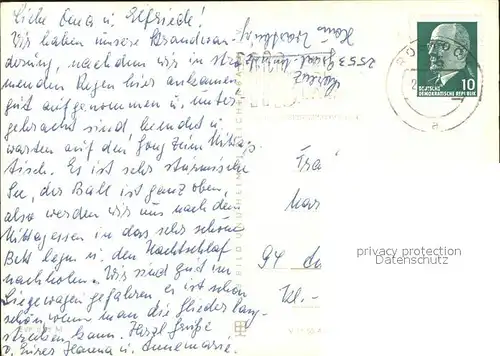 Liebe Oma u. Elfriede!
Wir haben unsere Strandwan-
derung, nachdem wir in strö
menden Regen hier ankamen
gut aufgenommen u. unter-
gebracht sind, beendet u.
warten auf den Gong zum Mittag
tisch. Es ist sehr stürmische
See, der Ball ist ganz oben,
also werden wir uns nach dem
Mittagessen in das sehr schöne
Bett legen u. den Nachtschlaf
nachholen. Wir sind gut im
Liegewagen gefahren es ist schon
schön wenn man die Glieder lang-
strecken kann. Herzl. Grüße
v. Eurer Hanna u. Annemarie.
2553 Graal-Müritz
ROSTOCK
DEUTSCHE
DEMOKRATISCHE REPUBLIK
10
Fra
Mar
94
Kl.-
privacy protection
Datenschutz